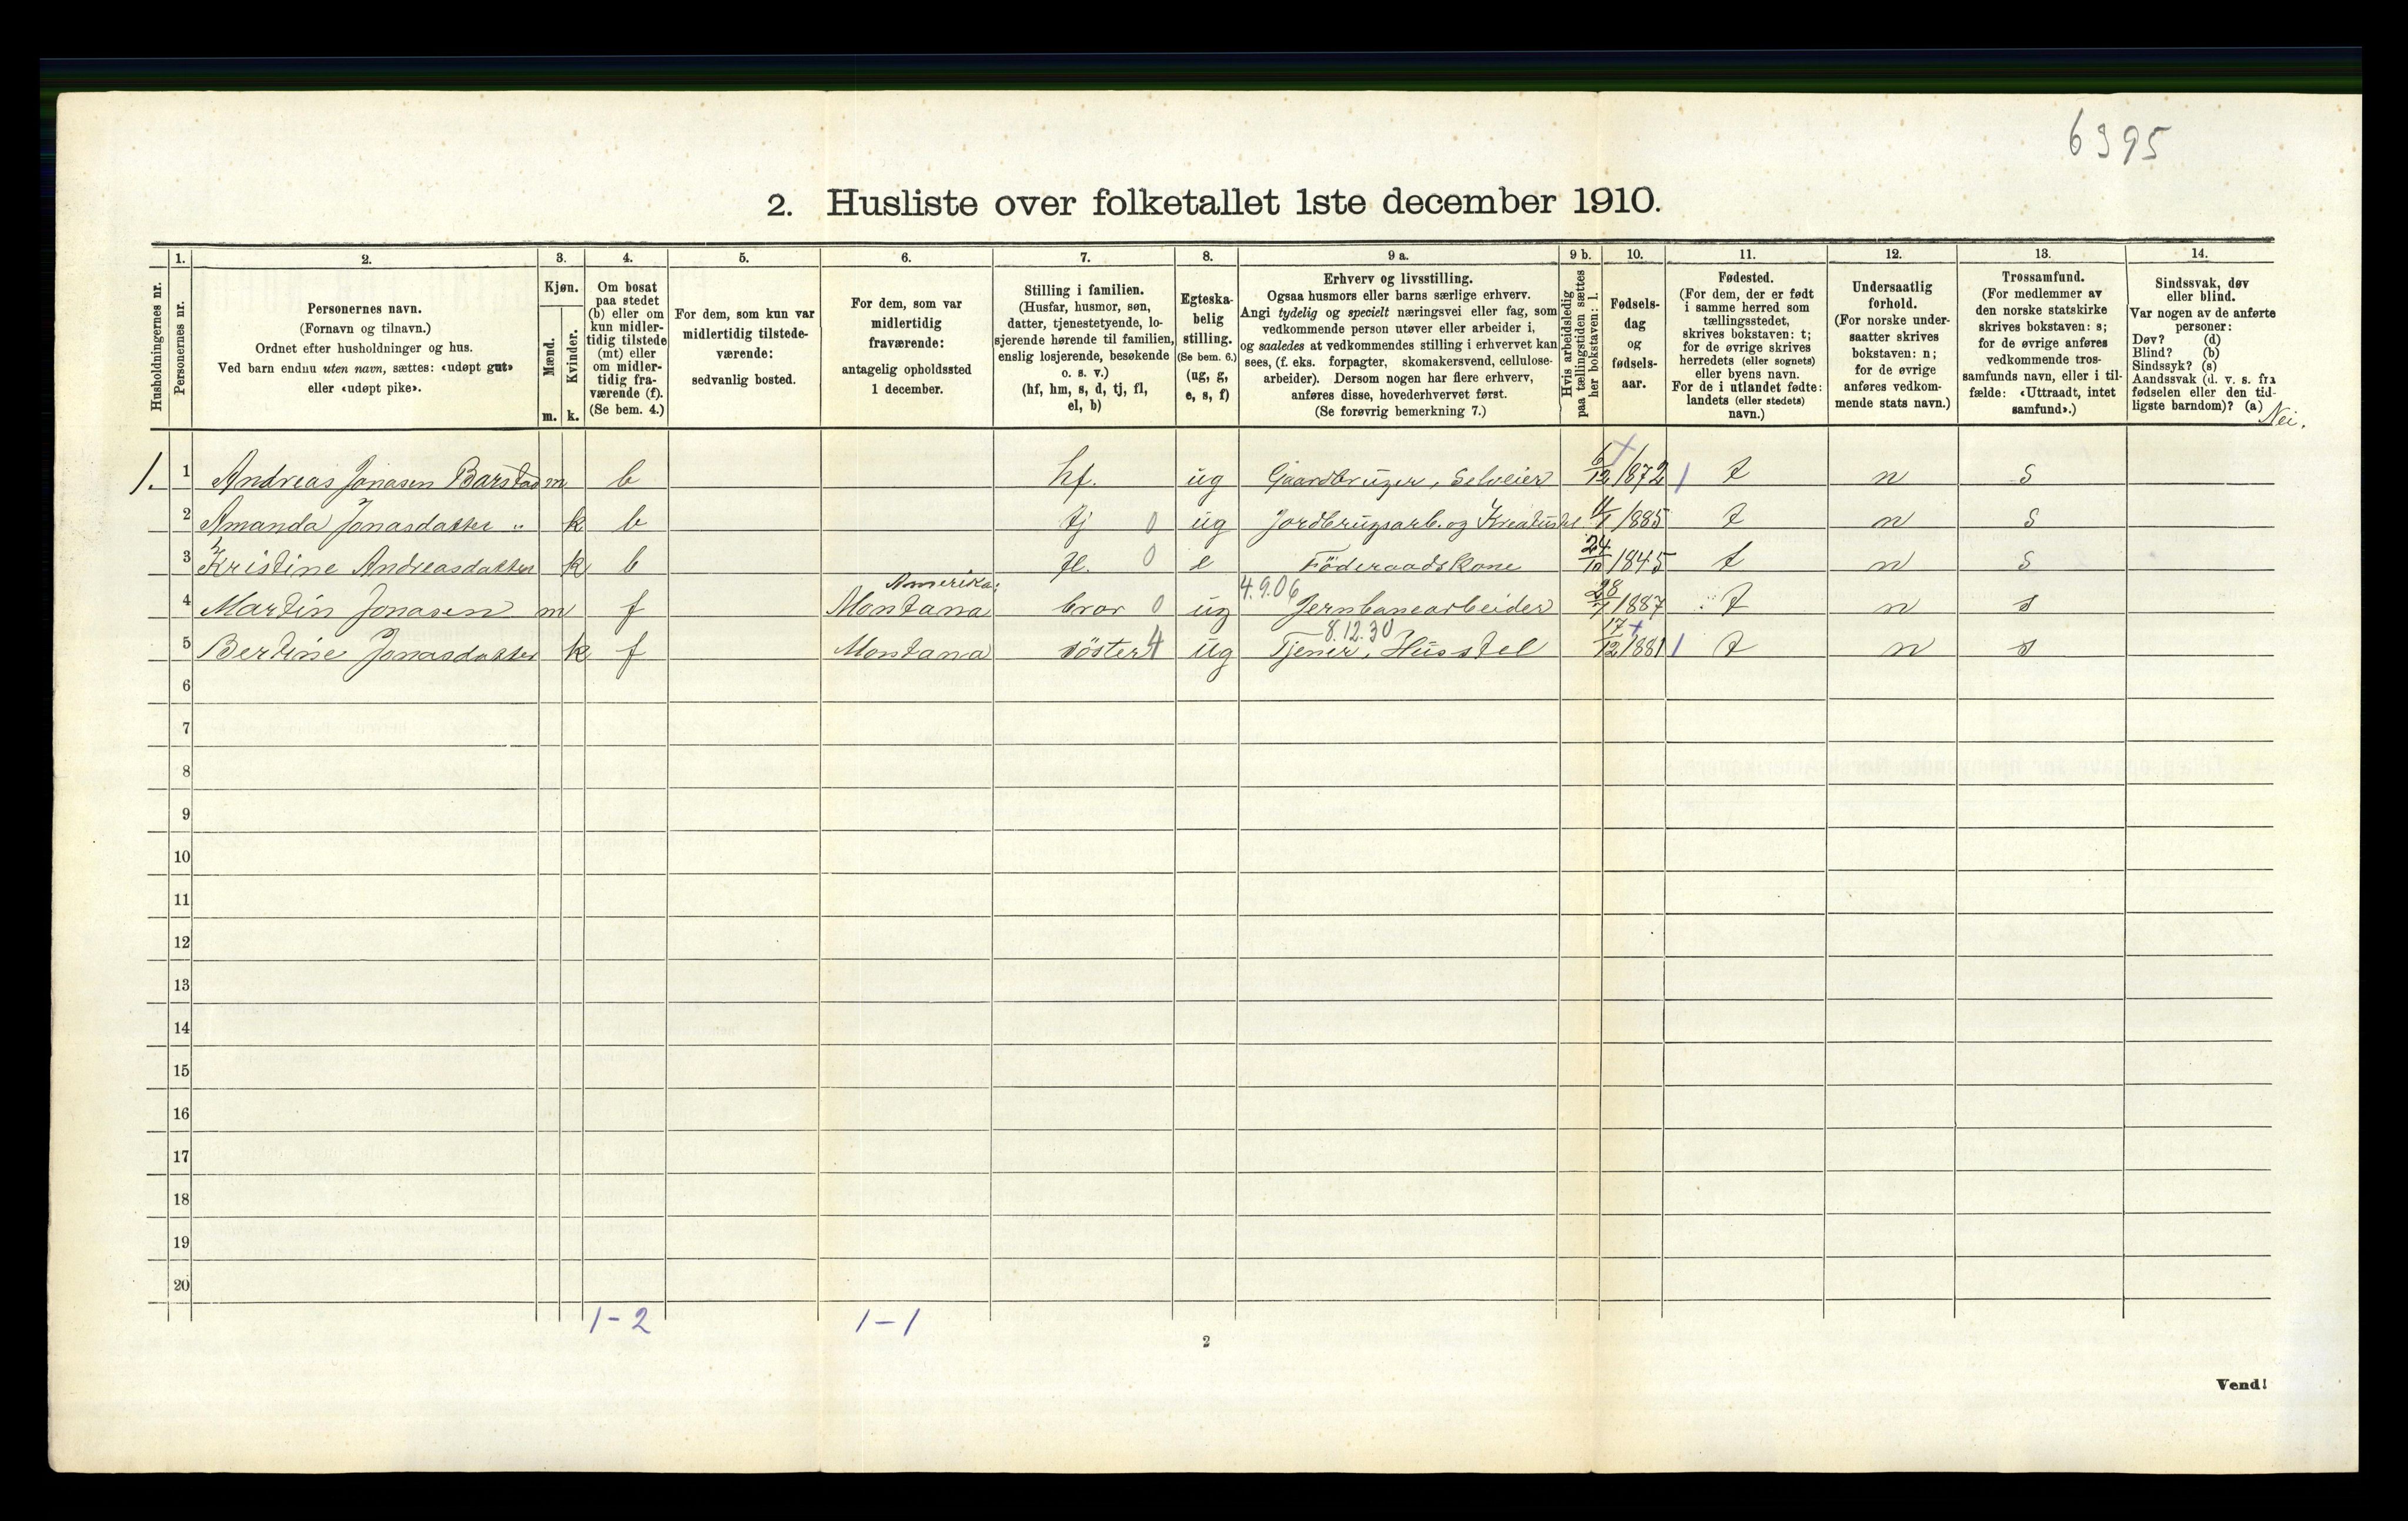 6395
2. Husliste over folketallet 1ste december 1910.
Husholdningernes nr.
1.
Personernes nr.
2.
Personernes navn.
(Fornavn og tilnavn.)
Ordnet efter husholdninger og hus.
Ved barn endnu uten navn, sættes: «udøpt gut»
eller «udøpt pike».
3.
Kjøn.
Mænd.
m.
Kvinder.
k.
4.
Om bosat
paa stedet
(b) eller om
kun midler-
tidig tilstede
(mt) eller
om midler-
tidig fra-
værende (f).
(Se bem. 4.)
5.
For dem, som kun var
midlertidig tilstede-
værende:
sedvanlig bosted.
6.
For dem, som var
midlertidig
fraværende:
antagelig opholdssted
1 december.
7.
Stilling i familien.
(Husfar, husmor, søn,
datter, tjenestetyende, lo-
sjerende hørende til familien,
enslig losjerende, besøkende
o. s. v.)
(hf, hm, s, d, tj, fl,
el, b)
8.
Egteska-
belig
stilling.
(Se bem. 6.)
(ug, g,
e, s, f)
9 a.
Erhverv og livsstilling.
Ogsaa husmors eller barns særlige erhverv.
Angi tydelig og specielt næringsvei eller fag, som
vedkommende person utøver eller arbeider i,
og saaledes at vedkommendes stilling i erhvervet kan
sees, (f. eks. forpagter, skomakersvend, cellulose-
arbeider). Dersom nogen har flere erhverv,
anføres disse, hovederhvervet først.
(Se forøvrig bemerkning 7.)
9 b.
Hvis arbeidsledig
paa tællingstiden sættes
her bokstaven: l.
10.
Fødsels-
dag
og
fødsels-
aar.
11.
Fødested.
(For dem, der er født
i samme herred som
tællingsstedet,
skrives bokstaven: t;
for de øvrige skrives
herredets (eller sognets)
eller byens navn.
For de i utlandet fødte:
landets (eller stedets)
navn.)
12.
Undersaatlig
forhold.
(For norske under-
saatter skrives
bokstaven: n;
for de øvrige
anføres vedkom-
mende stats navn.)
13.
Trossamfund.
(For medlemmer av
den norske statskirke
skrives bokstaven: s;
for de øvrige anføres
vedkommende tros-
samfunds navn, eller i til-
fælde: «Uttraadt, intet
samfund».)
14.
Sindssvak, døv
eller blind.
Var nogen av de anførte
personer:
Døv? (d)
Blind? (b)
Sindssyk? (s)
Aandssvak (d. v. s. fra
fødselen eller den tid-
ligste barndom)? (a)
Nei.
1. 1 Andreas Jonasen Barstad m b hf. ug Gaardbruger, Selveier 6/12 1872 t n s
2 Amanda Jonasdatter " k b tj 0 ug Jordbrugsarb. og Kreaturst. 11/1 1885 t n s
3 Kristine Andreasdatter k b fl. 0 e Föderaadskone 24/10 1845 t n s
Amerika: 4.9.06
4 Martin Jonasen m f Montana bror 0 ug Jernbanearbeider 28/7 1887 t n s
8.12.30
5 Bertine Jonasdatter k f Montana söster 4 ug Tjener, Husstel 17/12 1881 t n s
6
7
8
9
10
11
12
13
14
15
16
17
18
19
20
1-2 1-1
2
Vend!